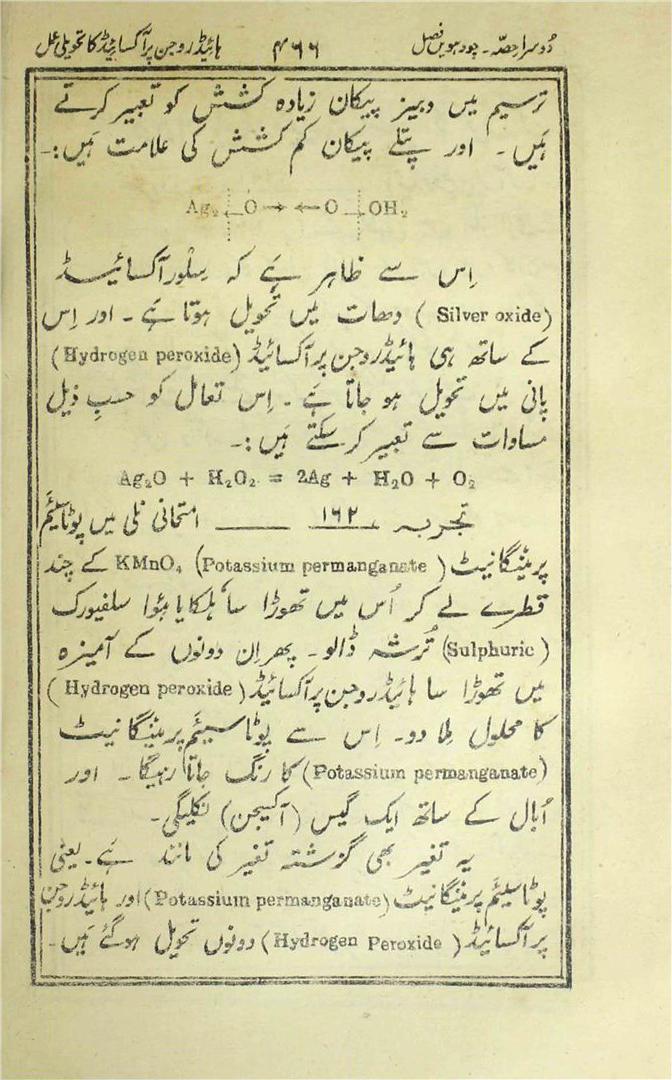 دوسرا حصہ۔ چودہویں فصل ۴۶۶ ہائیڈروجن پرآکسائیڈ کا تحویلی عمل
ترسیم میں دبیز پیکان زیادہ کشش کو تعبیر کرتے
ہیں۔ اور پتلے پیکان کم کشش کی علامت ہیں:۔
Ag₂ ← O → ← O → OH₂
اِس سے ظاہر ہے کہ سِلور آکسائیڈ
(Silver oxide) دھات میں تحویل ہوتا ہے۔ اور اِس
کے ساتھ ہی ہائیڈروجن پرآکسائیڈ (Hydrogen peroxide)
پانی میں تحویل ہو جاتا ہے۔ اِس تعامل کو حسبِ ذیل
مساوات سے تعبیر کر سکتے ہیں:۔
Ag₂O + H₂O₂ = 2Ag + H₂O + O₂
تجربہ ۱۶۲ ــــــ امتحانی نلی میں پوٹاسیئم
پرمینگانیٹ (Potassium permanganate) KMnO₄ کے چند
قطرے لے کر اُس میں تھوڑا سا ہلکایا ہُوا سلفیورک
(Sulphuric) تُرشہ ڈالو۔ پھر اِن دونوں کے آمیزہ
میں تھوڑا سا ہائیڈروجن پرآکسائیڈ (Hydrogen peroxide)
کا محلول مِلا دو۔ اِس سے پوٹاسیئم پرمینگانیٹ
(Potassium permanganate) کا رنگ جاتا رہیگا۔ اور
اُبال کے ساتھ ایک گیس (آکسیجن) نکلیگی۔
یہ تغیر بھی گزشتہ تغیر کی مانند ہے۔ یعنی
پوٹاسیئم پرمینگانیٹ (Potassium permanganate) اور ہائیڈروجن
پرآکسائیڈ (Hydrogen Peroxide) دونوں تحویل ہو گئے ہیں۔